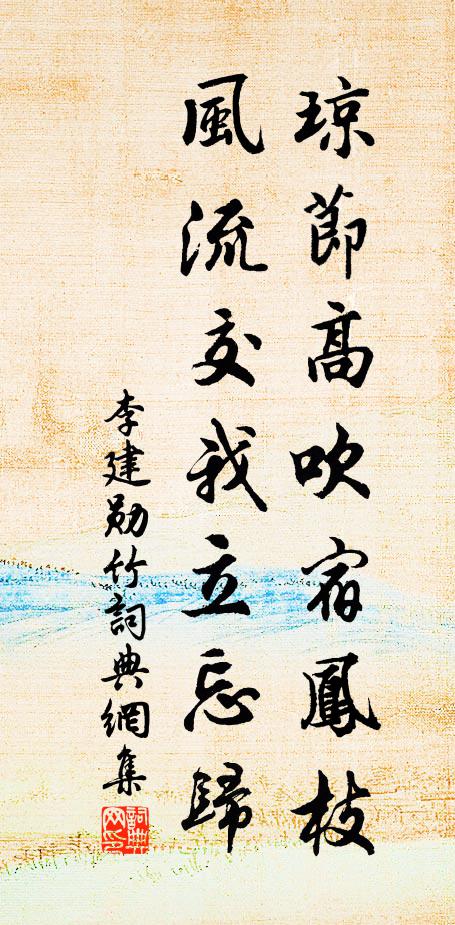 琼莭髙吹宿鳳枝
風流交我立忘歸
李建勋竹詞典網集
詞典网印